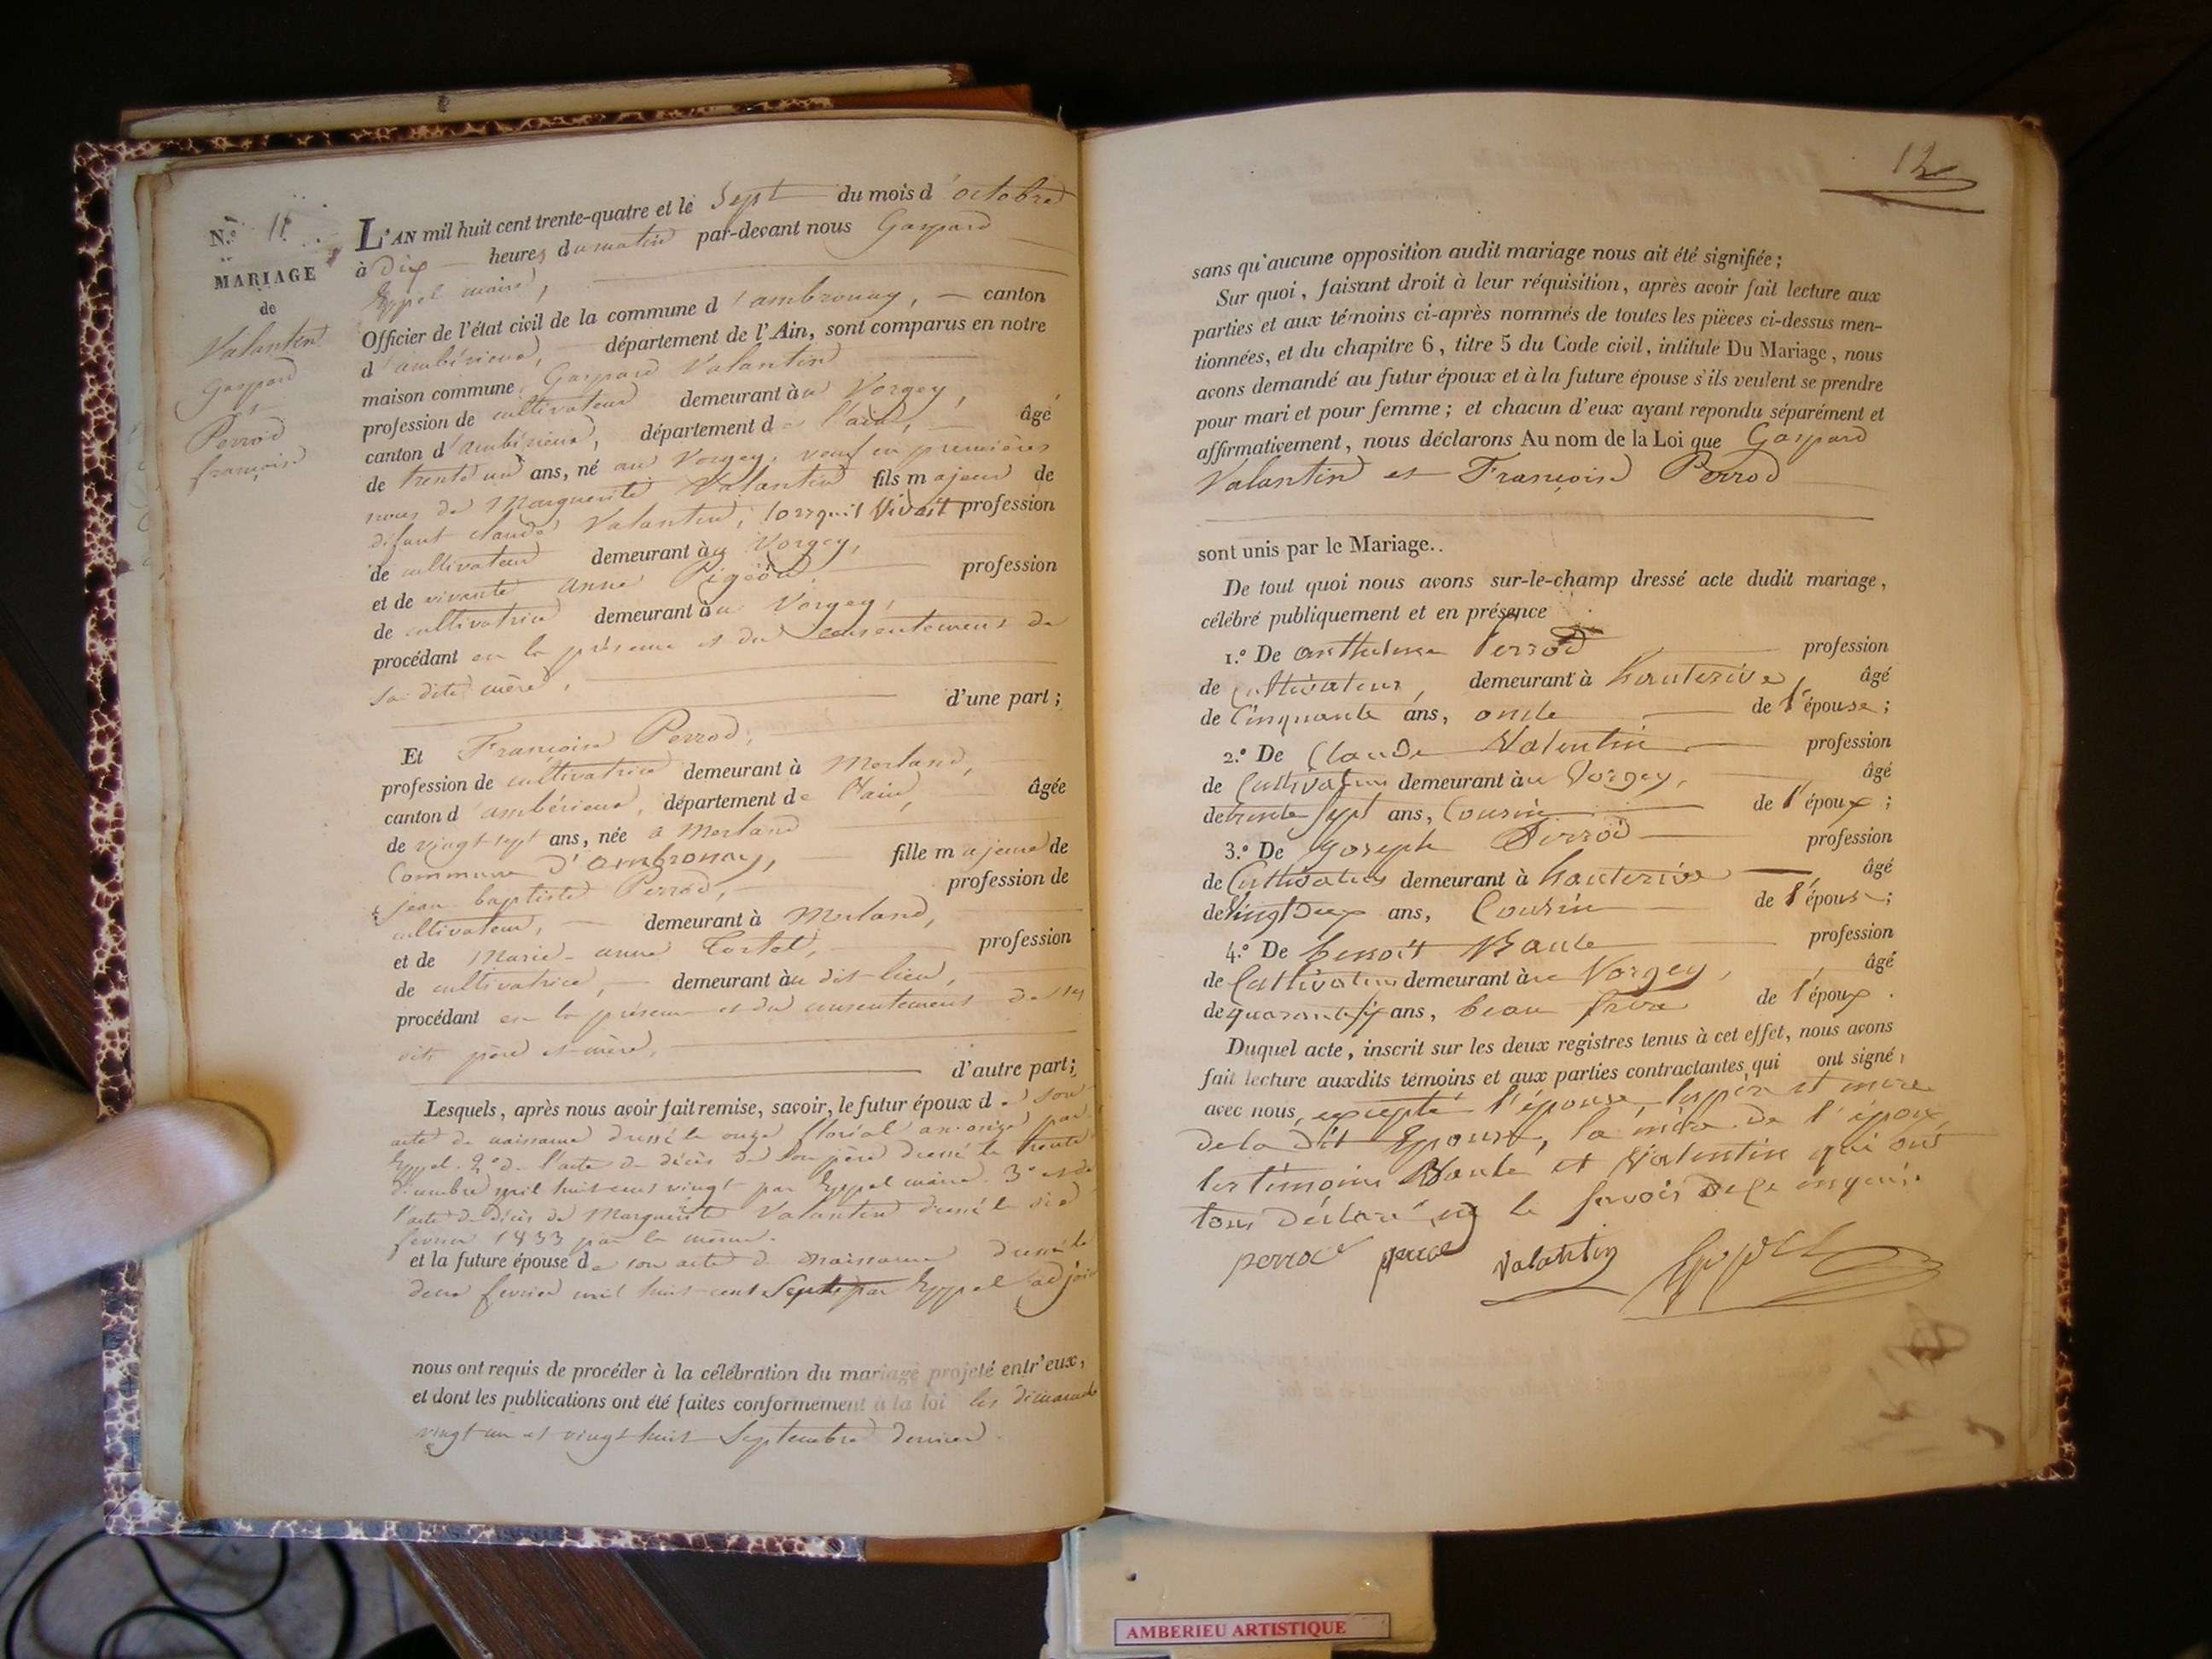 N.º 11
MARIAGE
de
Valantin
Gaspard
et
Perrod
françoise
L'AN mil huit cent trente-quatre et le Sept du mois d'octobre
à Dix heures du matin par-devant nous Gaspard
Eyppel maire,
Officier de l'état civil de la commune d'ambronay, canton
d'ambérieux, département de l'Ain, sont comparus en notre
maison commune Gaspard Valantin
profession de cultivateur demeurant au Vorgey,
canton d'ambérieux, département de l'ain, âgé
de trente un ans, né au Vorgey, veuf en premières
noces de Marguerite Valantin fils majeur de
défunt claude Valantin, lorsquil Vivait profession
de cultivateur demeurant au Vorgey,
et de vivante anne Pigeon profession
de cultivatrice demeurant au Vorgey,
procédant en la présence et du consentement de
sa dite mère,
d'une part ;
Et Françoise Perrod,
profession de cultivatrice demeurant à Merland,
canton d'ambérieux, département de l'ain, âgée
de vingt sept ans, née à Merland
Commune d'ambronay, fille majeure de
jean baptiste Perrod, profession de
cultivateur, demeurant à Merland,
et de Marie-anne Tortel, profession
de cultivatrice, demeurant au dit lieu,
procédant en la présence et du consentement de ses
dits père et mère,
d'autre part;
Lesquels, après nous avoir fait remise, savoir, le futur époux de son
acte de naissance dressé le onze floréal an onze par
Eyppel. 2º de l'acte de décès de son père dressé le trente
décembre mil huit cent vingt par Eyppel maire. 3º et de
l'acte de décès de Marguerite Valantin dressé le dix
fevrier 1833 par le même.
et la future épouse de son acte de naissance dressé le
deux fevrier mil huit cent Sept par Eyppel adjoint
nous ont requis de procéder à la célébration du mariage projeté entr'eux,
et dont les publications ont été faites conformément à la loi les dimanches
vingt un et vingt huit Septembre dernier.
12
sans qu'aucune opposition audit mariage nous ait été signifiée ;
Sur quoi, faisant droit à leur réquisition, après avoir fait lecture aux
parties et aux témoins ci-après nommés de toutes les pièces ci-dessus men-
tionnées, et du chapitre 6, titre 5 du Code civil, intitulé Du Mariage, nous
avons demandé au futur époux et à la future épouse s'ils veulent se prendre
pour mari et pour femme ; et chacun d'eux ayant repondu séparément et
affirmativement, nous déclarons Au nom de la Loi que Gaspard
Valantin et Françoise Perrod
sont unis par le Mariage..
De tout quoi nous avons sur-le-champ dressé acte dudit mariage,
célébré publiquement et en présence
1.º De anthelme Perrod profession
de Cultivateur, demeurant à hauterive, âgé
de Cinquante ans, oncle de l'épouse ;
2.º De Claude Valentin profession
de Cultivateur demeurant au Vorgey, âgé
de trente sept ans, Cousin de l'époux ;
3.º De Joseph Perrod profession
de Cultivateur demeurant à hauterive âgé
de Vingt Deux ans, Cousin de l'épouse ;
4.º De benoit Baule profession
de Cultivateur demeurant au Vorgey, âgé
de quarante six ans, beau frère de l'époux.
Duquel acte, inscrit sur les deux registres tenus à cet effet, nous avons
fait lecture auxdits témoins et aux parties contractantes qui ont signé,
avec nous, excepté l'épouse, les père et mere
de la dit Epouse, la mère de l'époux
les témoins Baule et Valentin qui ont
tous déclaré ne le savoir de ce enquis.
perrod perrod Valantin Eyppel
AMBERIEU ARTISTIQUE